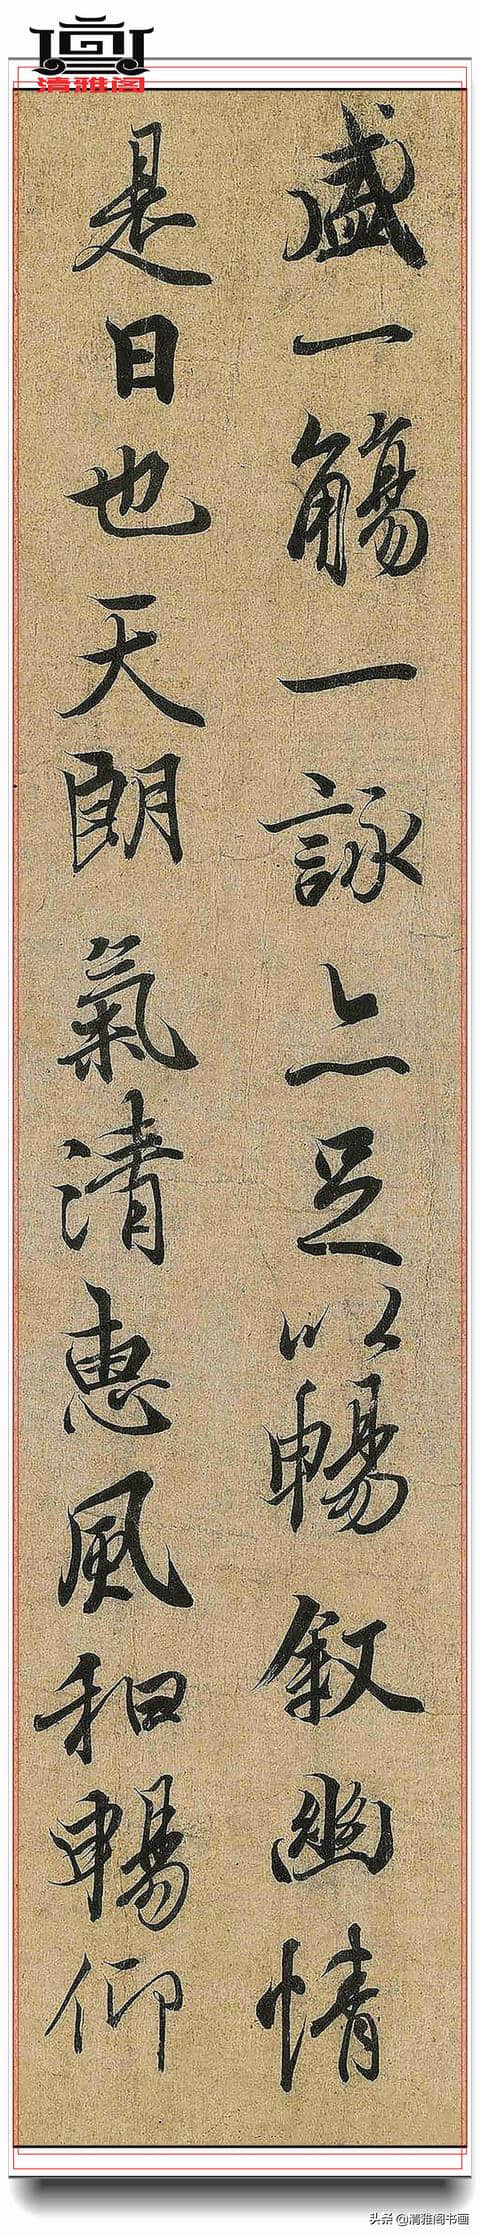 清雅阁
盛一觴一詠亦足以暢叙幽情
是日也天朗氣清惠風和暢仰
头条@清雅阁书画